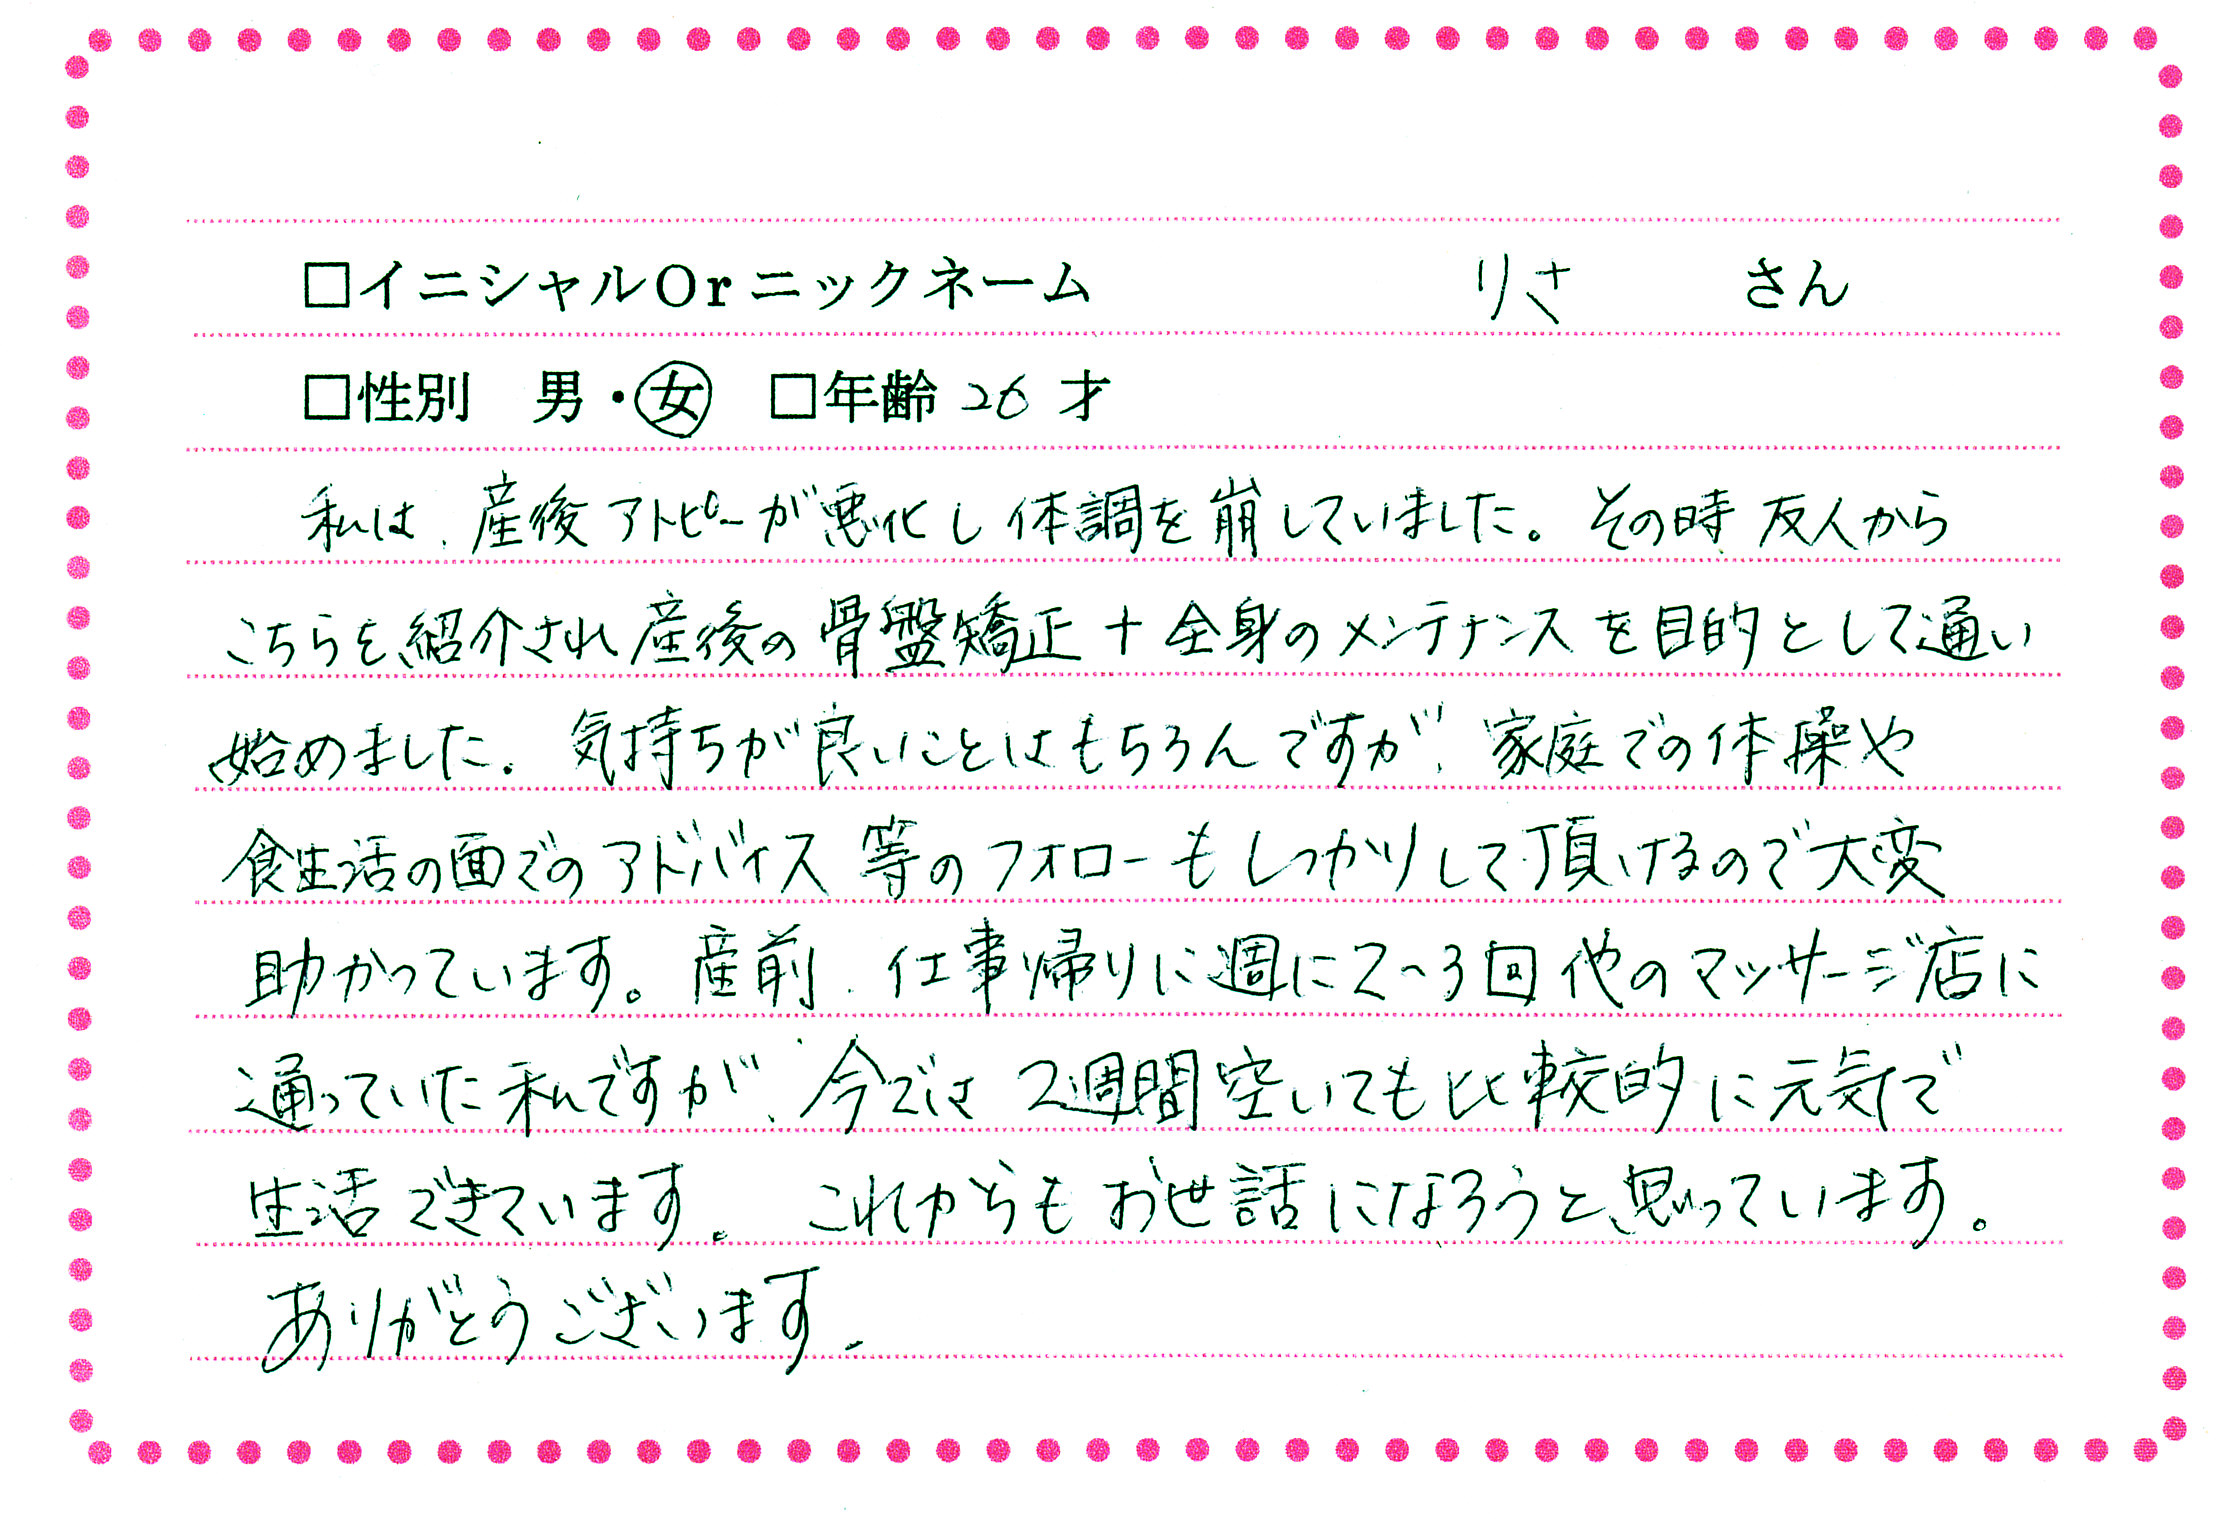 □イニシャルOrニックネーム りさ さん
□性別 男・女 □年齢 26 才
私は、産後アトピーが悪化し体調を崩していました。その時友人から
こちらを紹介され産後の骨盤矯正+全身のメンテナンスを目的として通い
始めました。気持ちが良いことはもちろんですが、家庭での体操や
食生活の面でのアドバイス等のフォローもしっかりして頂けるので大変
助かっています。産前、仕事帰りに週に2~3回他のマッサージ店に
通っていた私ですが、今では2週間空いても比較的に元気で
生活できています。これからもお世話になろうと思っています。
ありがとうございます。